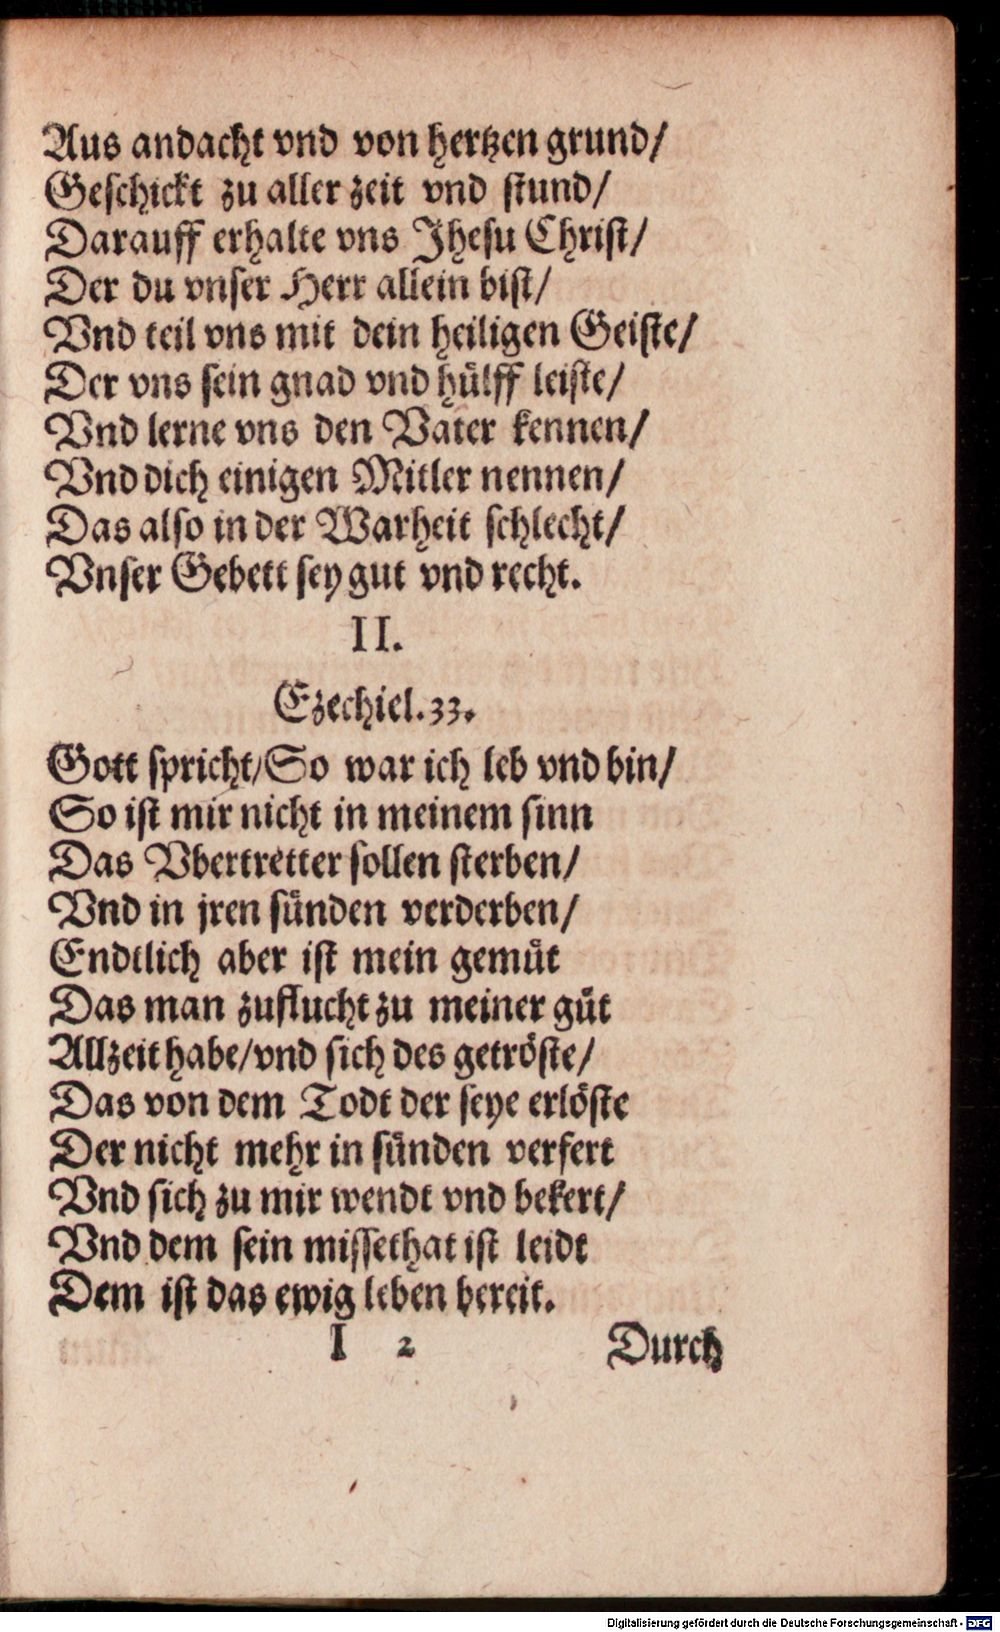 Aus andacht vnd von hertzen grund/
Geschickt zu aller zeit vnd stund/
Darauff erhalte vns Jhesu Christ/
Der du vnser Herr allein bist/
Vnd teil vns mit dein heiligen Geiste/
Der vns sein gnad vnd hülff leiste/
Vnd lerne vns den Vater kennen/
Vnd dich einigen Mitler nennen/
Das also in der Warheit schlecht/
Vnser Gebett sey gut vnd recht.
II.
Ezechiel.33.
Gott spricht/So war ich leb vnd bin/
So ist mir nicht in meinem sinn
Das Vbertretter sollen sterben/
Vnd in jren sünden verderben/
Endtlich aber ist mein gemüt
Das man zuflucht zu meiner güt
Allzeit habe/vnd sich des getröste/
Das von dem Todt der seye erlöste
Der nicht mehr in sünden verfert
Vnd sich zu mir wendt vnd bekert/
Vnd dem sein missethat ist leidt
Dem ist das ewig leben bereit.
I 2 Durch
Digitalisierung gefördert durch die Deutsche Forschungsgemeinschaft - DFG